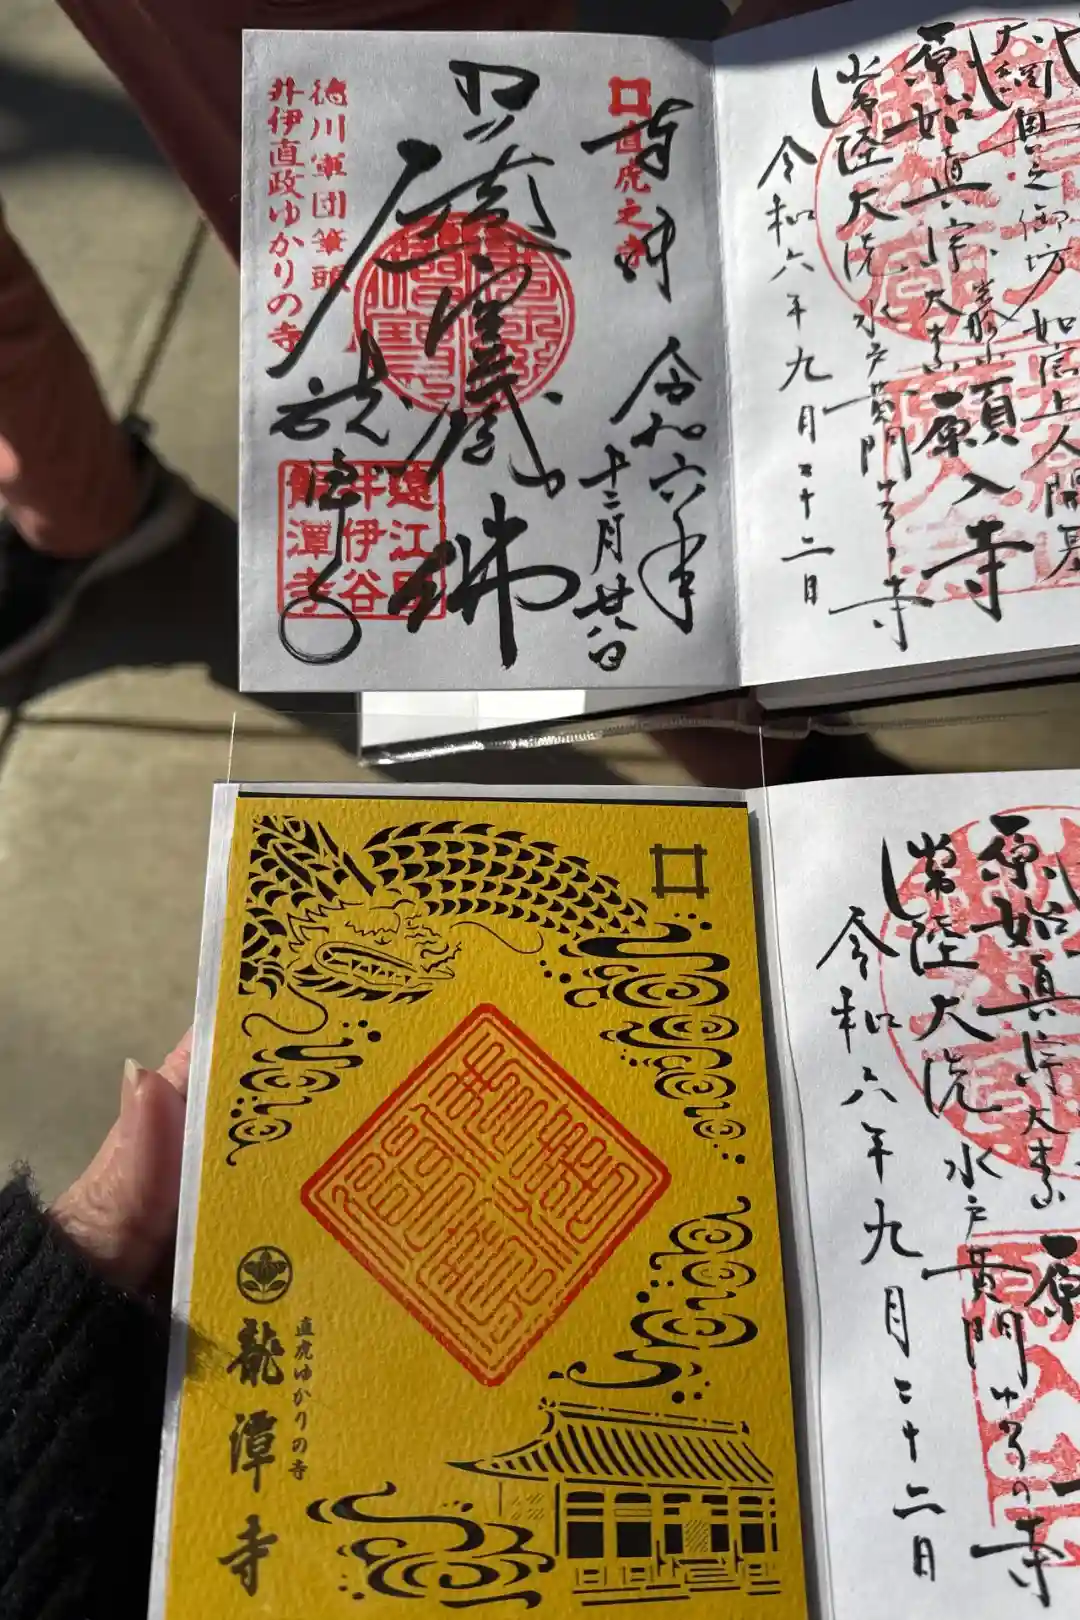 奉拝
直虎之寺
令和六年
十二月廿八日
佛
徳川軍団筆頭
井伊直政ゆかりの寺
龍潭寺
遠江国
井伊谷
龍潭寺
大網奥之御坊 如信上人開基
原始真宗大本山 願入寺
常陸大洗 水戸黄門ゆかりの寺
令和六年九月二十二日
直虎ゆかりの寺
龍潭寺
原始真宗大本山 願
常陸大洗 水戸黄門ゆかりの寺
令和六年九月二十二日